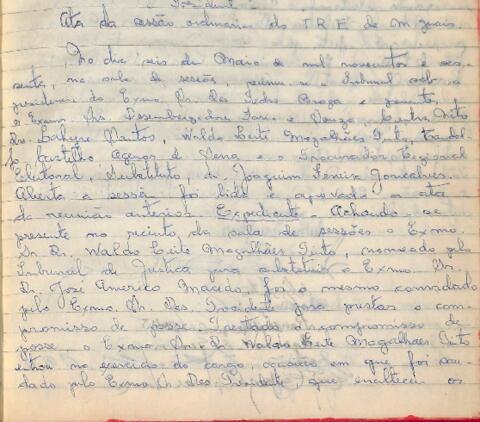 Presidente
Ata da sessão ordinária do T R E de M. Gerais.
No dia seis de Maio de mil novecentos e ses-
senta, na sala de sessões, reuniu-se o Tribunal sob a
presidencia do Exmo. Sr. Des. Pedro Braga e presentes,
os Exmos. Srs. Desembargadores Faria e Souza, Cintra Neto
Drs. Labyre Santos, Waldo Leite Magalhães Pinto,
Castilho, Agenor de Sena e o Procurador Regional
Eleitoral, Substituto, dr. Joaquim Ferreira Gonçalves.
Aberta a sessão foi lida e aprovada a ata
da reunião anterior. Expediente - Achando-se
presente no recinto da sala de sessões o Exmo.
Sr. Dr. Waldo Leite Magalhães Pinto, nomeado pelo
Tribunal de Justiça para substituir o Exmo. Sr.
Dr. José Americo Macedo, foi o mesmo convidado
pelo Exmo. Sr. Des. Presidente para prestar o com-
promisso de posse. Prestado o compromisso de
posse o Exmo. Sr. Dr. Waldo Leite Magalhães Pinto
entrou no exercicio do cargo, ocasião em que foi sau-
dado pelo Exmo. Sr. Des. Presidente, que enalteceu os